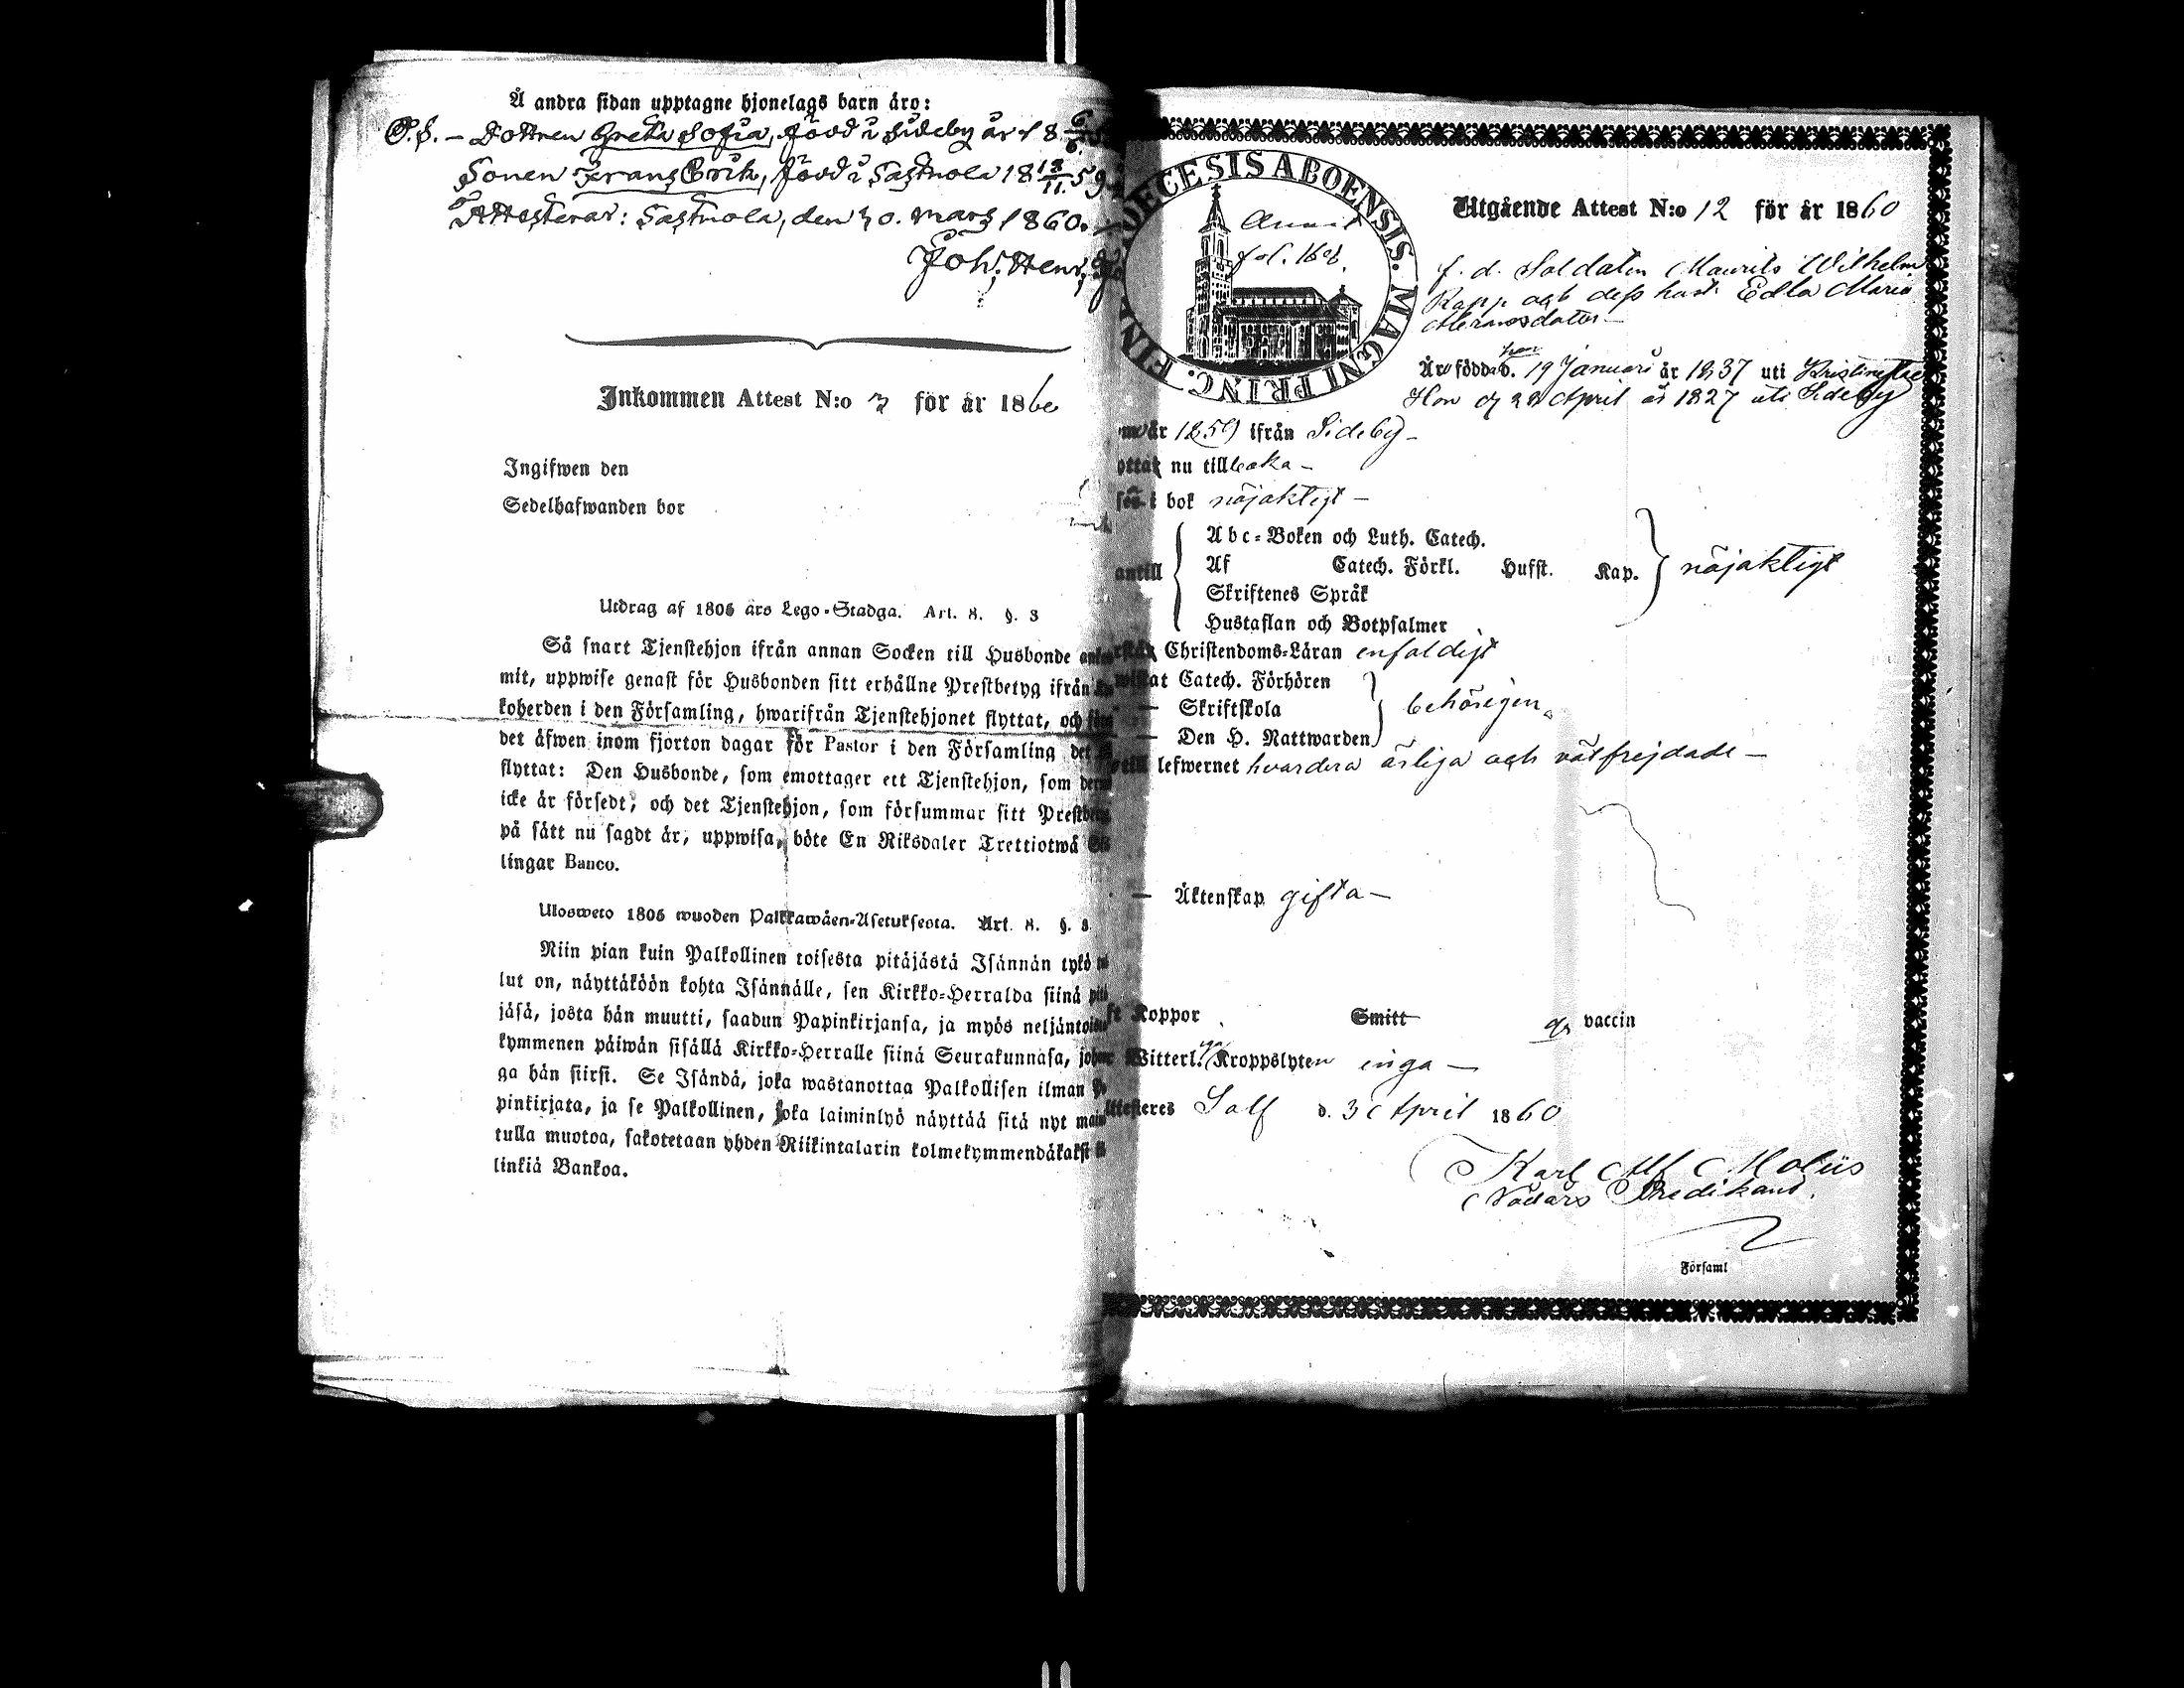 Å andra sidan upptagne hjonelags barn äro:
O.S. – Dottren Greta Sofia, född i Sideby år 18
Sonen Frans Erik, född i Sastmola 18 13/11 59
Attesterar: Sastmola, den 30. Mars 1860.
Joh. Henr.
Inkommen Attest N:o 3 för år 1860
Ingifwen den
Sedelhafwanden bor
Utdrag af 1805 års Lego-Stadga. Art. 8. §. 3
Så snart Tjenstehjon ifrån annan Socken till Husbonde
mit, uppwise genast för Husbonden sitt erhållne Prestbetyg ifrån
koherden i den Församling, hwarifrån Tjenstehjonet flyttat, och
det äfwen inom fjorton dagar för Pastor i den Församling det
flyttat: Den Husbonde, som emottager ett Tjenstehjon, som
icke är försedt, och det Tjenstehjon, som försummar sitt
på sätt nu sagdt är, uppwisa, böte En Riksdaler Trettiotwå
lingar Banco.
Ulosweto 1805 wuoden Palkkawäen-Asetuksesta. Art. 8. §. 3
Niin pian kuin Palkollinen toisesta pitäjästä Isännän tykö
lut on, näyttäköön kohta Isännälle, sen Kirkko-Herralda siinä
jäsä, josta hän muutti, saadun Papinkirjansa, ja myös
kymmenen päiwän sisällä Kirkko-Herralle siinä Seurakunnasa,
ga hän siirsi. Se Isändä, joka wastanottaa Palkollisen ilman
pinkirjata, ja se Palkollinen, joka laiminlyö näyttää sitä nyt
tulla muotoa, sakotetaan yhden Riikintalarin kolmekymmendäkaksi
linkiä Bankoa.
DECESIS ABOENSIS. MAGNI PRINC. FIN
fol. 168.
Utgående Attest N:o 12 för år 1860
f. d. Soldaten Maurits Wilhelm
Rapp och dess hust. Edla Maria
han
Äro födda d. 19 Januari år 1837 uti
Hon d 28 April år 1827 uti Sideby
år 1859 ifrån Sideby –
nu tillbaka –
i bok nöjaktigt –
antill
Abc-Boken och Luth. Catech.
Af Catech. Förkl. Husst. Kap.
Skriftenes Språk
Hustaflan och Botpsalmer
nöjaktigt
Christendoms-Läran enfaldigt
Catech. Förhören
— Skriftskola
— Den H. Nattwarden
behörigen
lefwernet hvardera ärliga och välfrejdade –
— Äktenskap gifta –
Koppor Smitt vaccin
Witterl. Kroppslyten inga –
Salf d. 30 April 1860
Karl Alf Moliis
Nödårs Predikant.
Församl